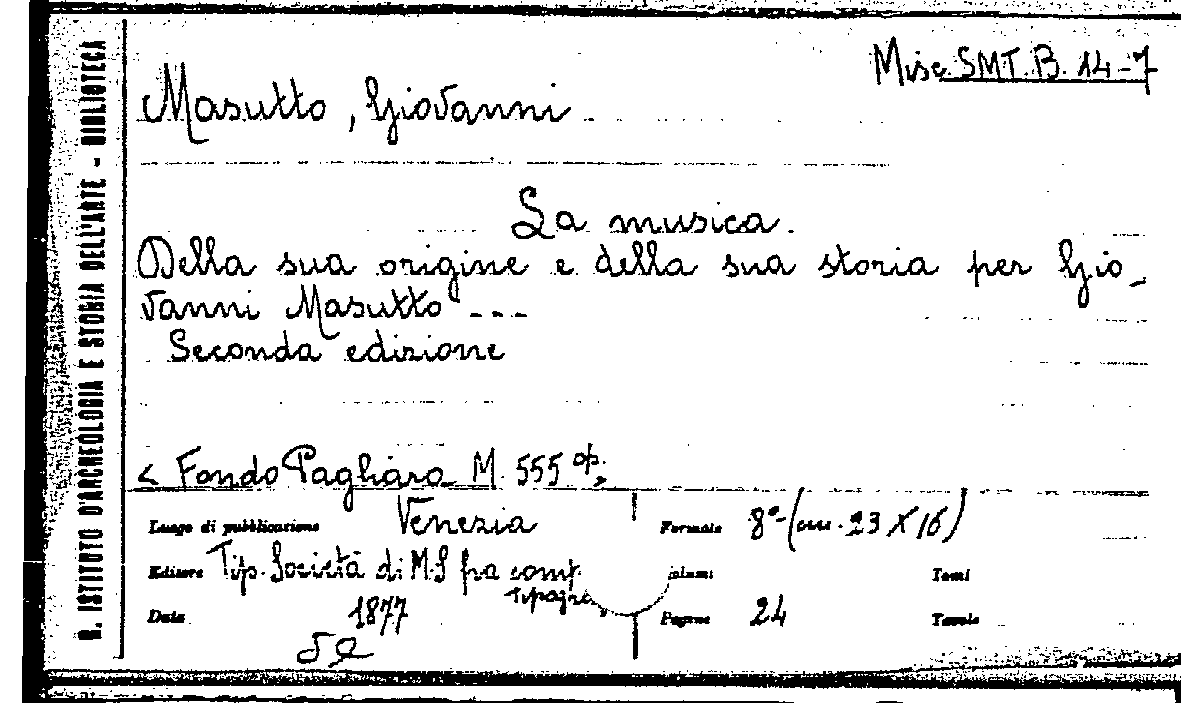 Misc SMT. B. 14-7
Masutto, Giovanni
La musica.
Della sua origine e della sua storia per Gio-
vanni Masutto ---
Seconda edizione
< Fondo Pagliara M. 555 op.
Luogo di pubblicazione Venezia Formato 8°-(cm. 23 X 16)
Editore Tip. Società di M.S fra comp. Tomi
Data 1877 Pagine 24 Tavole
R. ISTITUTO D'ARCHEOLOGIA E STORIA DELL'ARTE - BIBLIOTECA